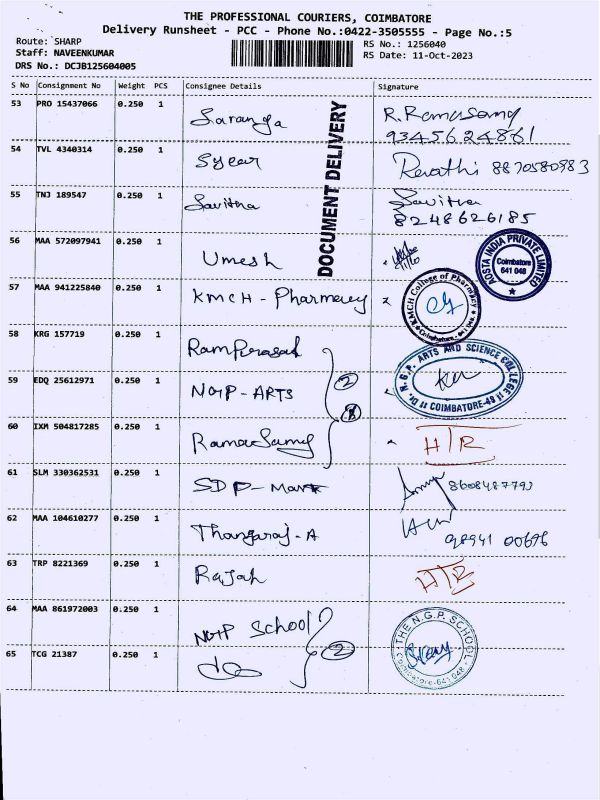 THE PROFESSIONAL COURIERS, COIMBATORE
Delivery Runsheet - PCC - Phone No.:0422-3505555 - Page No.:5
Route: SHARP
Staff: NAVEENKUMAR
DRS No.: DCJB125604005
RS No.: 1256040
RS Date: 11-Oct-2023
S No Consignment No Weight PCS Consignee Details Signature
DOCUMENT DELIVERY
53 PRO 15437066 0.250 1 Saranga R.Ramasamy
9345624861
54 TVL 4340314 0.250 1 Syear Revathi 8870580983
55 TNJ 189547 0.250 1 Savitha Savitha
8248626185
56 MAA 572097941 0.250 1 Umesh
AOSTA INDIA PRIVATE LIMITED
Coimbatore
641 048
57 MAA 941225840 0.250 1 KMCH - Pharmacy
KMCH College of Pharmacy
Coimbatore
58 KRG 157719 0.250 1 Ramprasad
Dr. N.G.P. ARTS AND SCIENCE COLLEGE
COIMBATORE-48
59 EDQ 25612971 0.250 1 NGP-ARTS
2
60 IXM 504817285 0.250 1 RamaSamy HTR
61 SLM 330362531 0.250 1 SDP-Mark 8608487793
62 MAA 104610277 0.250 1 Thangaraj-A
98941 00696
63 TRP 8221369 0.250 1 Rajah HTR
64 MAA 861972003 0.250 1 NGP School
THE N.G.P. SCHOOL
Coimbatore-641 048
65 TCG 21387 0.250 1 do 2